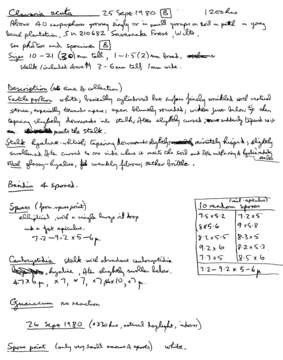 Clavaria acuta 25 Sept 1980 B 1200 hrs
Above 40 carpophores growing singly or in small groups on soil in path in young
beech plantation, SU 210682 Savernake Forest, Wilts.
See photos and specimens B
Size 10-21 (30) mm tall, 1-1.5(2) mm broad,
stalk included above 3-6 mm tall 1 mm wide.
Description (at time of collection)
Fertile portion white, basically cylindrical but surface finely wrinkled and vertical
above, especially towards apex, apex bluntly rounded, widest just below & then
tapering slightly downwards into stalk, often slightly curved,
meets the stalk.
Stalk hyaline-whitish, tapering downwards slightly, minutely hairy, slightly
Flesh glassy-hyaline, weakly fibrous rather brittle.
Basidia 4 spored.
Spores (from spore print)
ellipsoid with a single large oil drop
7.2-9.2 x 5-6µ
10 random spores
7.5 x 5.2 7.2 x 5
8 x 5.6 9 x 5.8
8.2 x 5.5 8.3 x 5
9.2 x 6 8.2 x 5.2
7.7 x 5 8.5 x 6
7.2-9.2 x 5-6µ
Caulocystidia stalk with abundant caulocystidia
hyaline, often slightly swollen below.
Guaiacum no reaction
26 Sept 1980 (0830 hrs, natural daylight, indoors)
Spore print (only very small amount of spores) white.